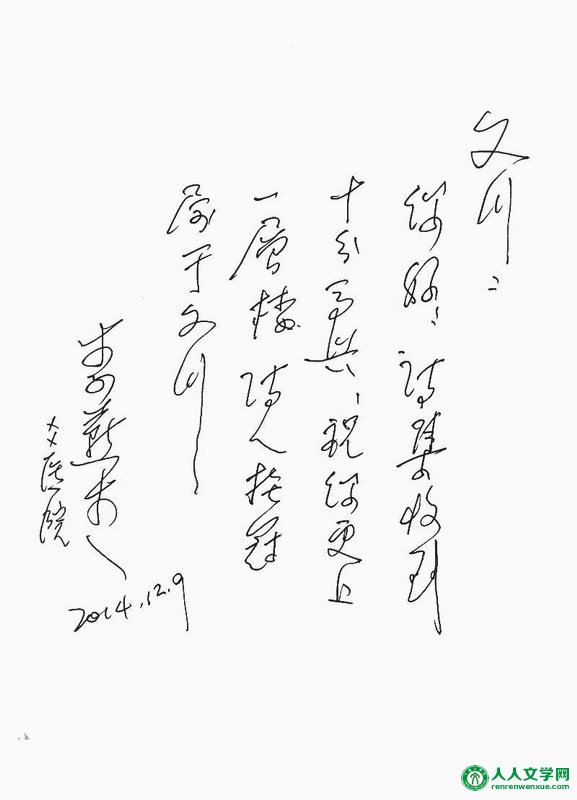 文川：
您好！诗集收到
十分高兴！祝您更上
一层楼 诗人桂冠
属于文川
李燕杰
医院
2014.12.9
人人文学网
renrenwenxue.com